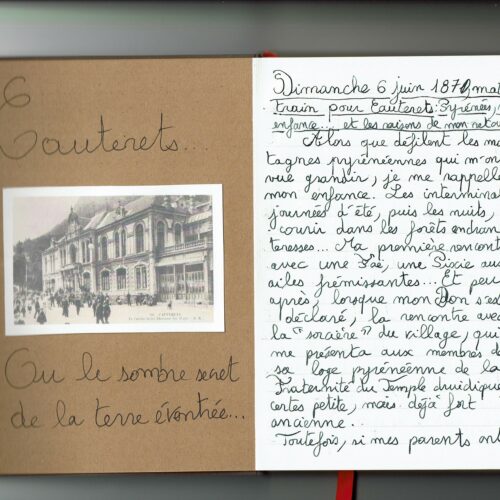 6
Cauterets...
CAUTERETS
Ou le sombre secret
de la terre éventrée...
Dimanche 6 juin 1870, mat
train pour Cauterets: Pyrénées,
enfance... et les raisons de mon retou
Alors que défilent les mo
tagnes pyrénéennes qui m'on
vue grandir, je me rappelle
mon enfance. Les intermina
journées d'été, puis les nuits,
courir dans les forêts enchan
teresses... Ma première rencont
avec une Fae, une Pixie aux
ailes frémissantes... Et peu
après, lorsque mon Don s'est
déclaré, la rencontre avec
la "sorcière" du village, qui
me présenta aux membres de
sa loge pyrénéenne de la
Fraternité du Temple druidique
certes petite, mais déjà fort
ancienne..
Toutefois, si mes parents ont